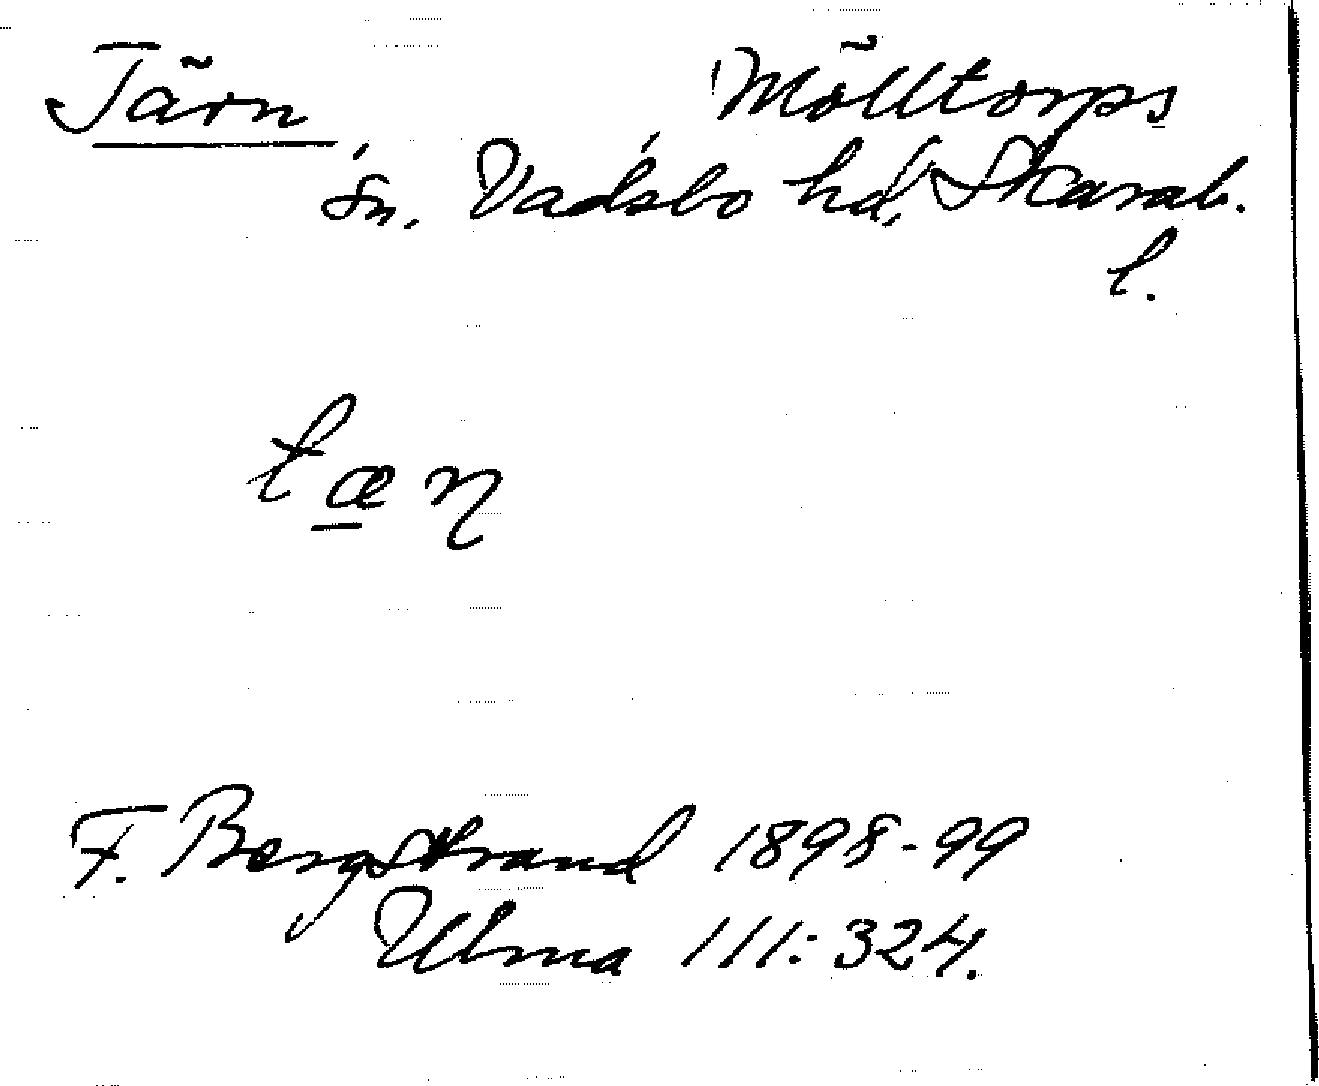 Tärn Mölltorps
sn. Vadsbo hd, Skarab.
l.
tæɳ
F. Bergstrand 1898-99
Ulma 111:324.